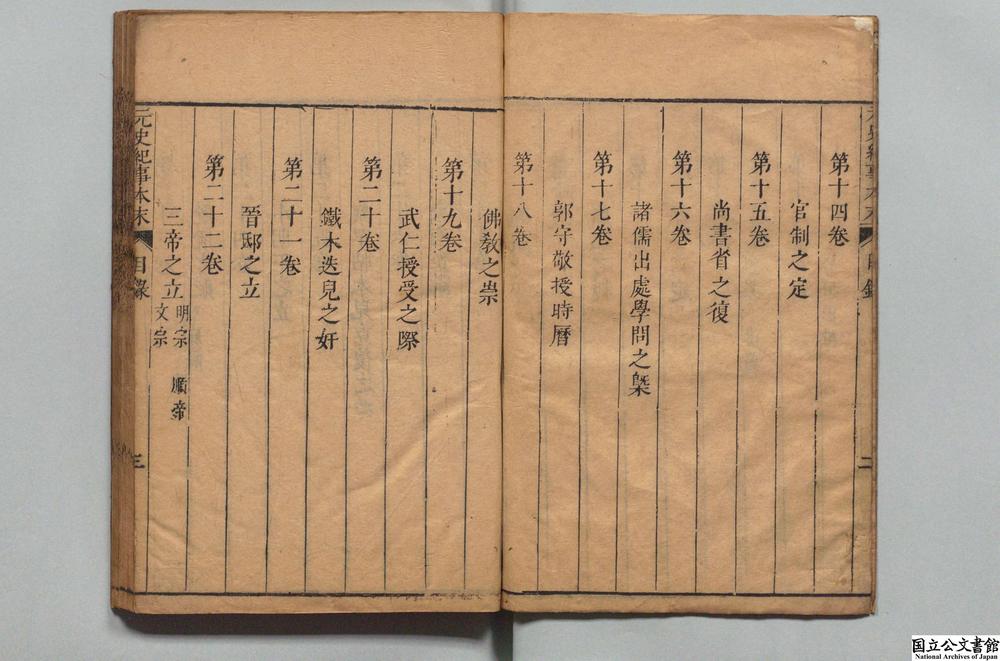 第十四卷
官制之定
第十五卷
尚書省之復
第十六卷
諸儒出處學問之槩
第十七卷
郭守敬授時曆
第十八卷
佛敎之祟
第十九卷
武仁授受之際
第二十卷
鐵木迭兒之奸
第二十一卷
晉邸之立
第二十二卷
三帝之立 明宗 文宗 順帝
元史紀事本末 目錄 二
元史紀事本末 目錄 三
国立公文書館
National Archives of Japan